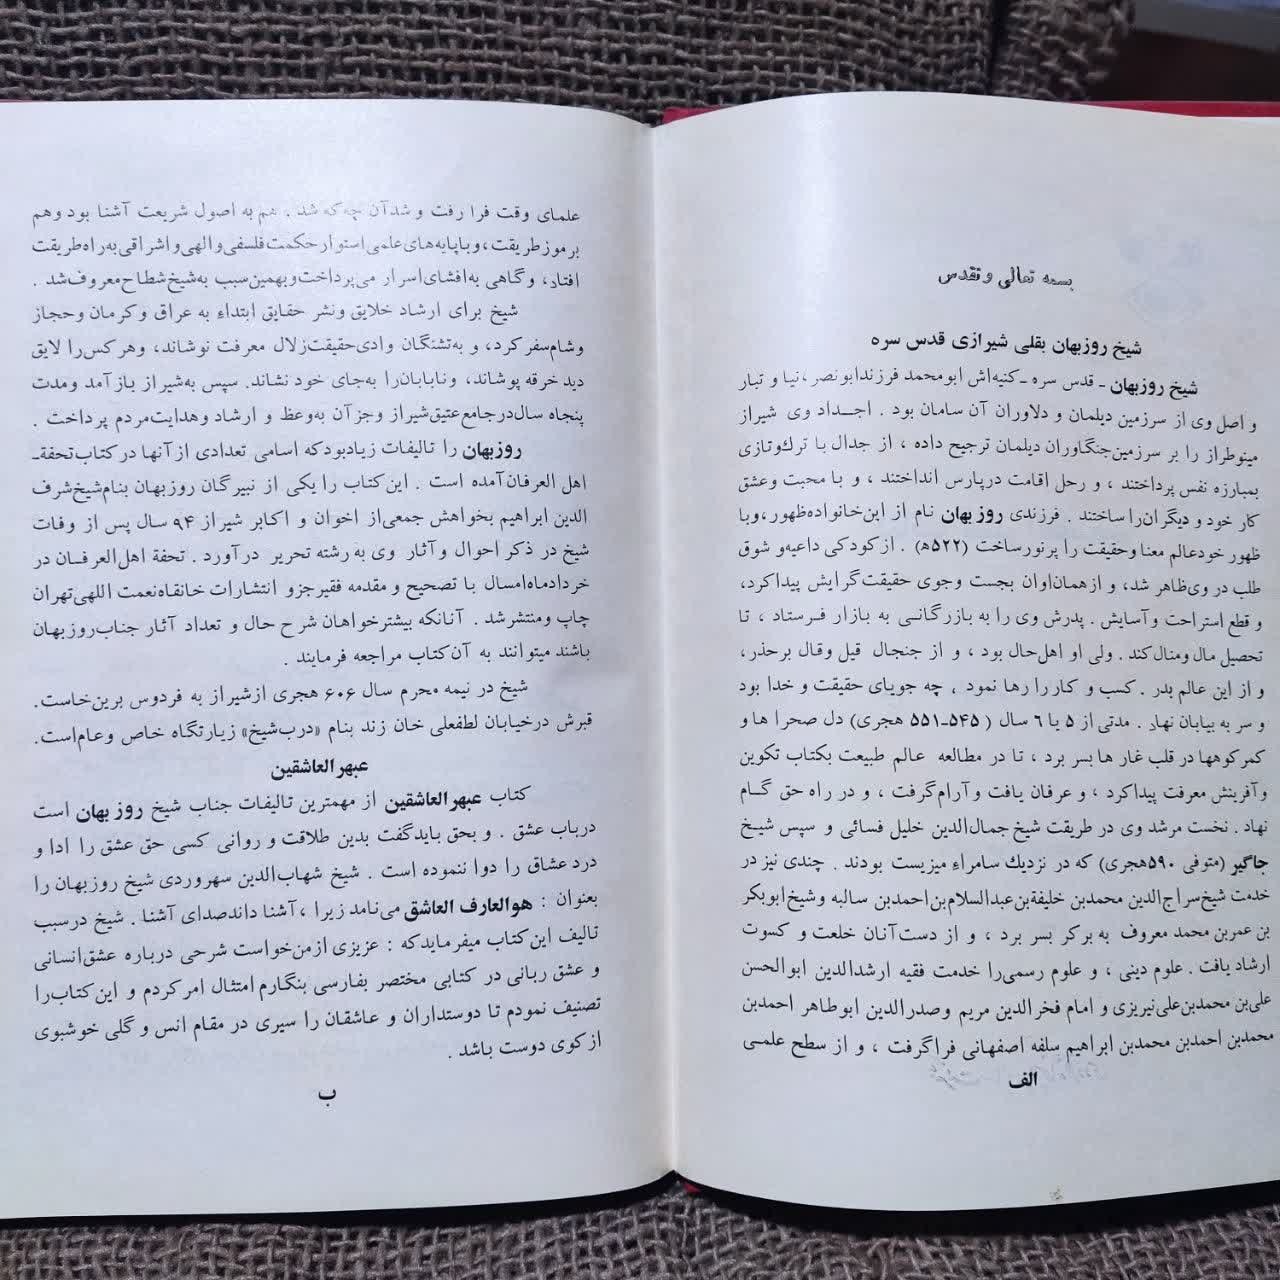 بسمه تعالی و تقدس
شیخ روزبهان بقلی شیرازی قدس سره
شیخ روزبهان - قدس سره - کنیه‌اش ابومحمد فرزند ابونصر ، نیا و تبار
و اصل وی از سرزمین دیلمان و دلاوران آن سامان بود . اجداد وی شیراز
مینوطراز را بر سرزمین جنگاوران دیلمان ترجیح داده ، از جدال با ترک و تازی
بمبارزه نفس پرداختند ، و رحل اقامت در پارس انداختند ، و با محبت و عشق
کار خود و دیگران را ساختند . فرزندی روزبهان نام از این خانواده ظهور ، و با
ظهور خود عالم معنا و حقیقت را پرنور ساخت (۵۲۲ه) . از کودکی داعیه و شوق
طلب در وی ظاهر شد، و از همان اوان بجست وجوی حقیقت گرایش پیدا کرد،
و قطع استراحت و آسایش . پدرش وی را به بازرگانی به بازار فرستاد ، تا
تحصیل مال ومنال کند . ولی او اهل حال بود ، و از جنجال قیل وقال برحذر،
و از این عالم بدر . کسب و کار را رها نمود ، چه جویای حقیقت و خدا بود
و سر به بیابان نهاد . مدتی از ۵ یا ۶ سال ( ۵۴۵-۵۵۱ هجری) دل صحرا ها و
کمرکوهها در قلب غار ها بسر برد ، تا در مطالعه عالم طبیعت بکتاب تکوین
و آفرینش معرفت پیدا کرد ، و عرفان یافت و آرام گرفت ، و در راه حق گام
نهاد . نخست مرشد وی در طریقت شیخ جمال‌الدین خلیل فسائی و سپس شیخ
جاگیر (متوفی ۵۹۰هجری) که در نزدیك سامراء میزیست بودند . چندی نیز در
خدمت شیخ سراج‌الدین محمدبن خلیفة بن عبدالسلام بن احمدبن سالبه وشیخ ابوبکر
بن عمربن محمد معروف به برکر بسر برد ، و از دست آنان خلعت و کسوت
ارشاد یافت . علوم دینی ، و علوم رسمی را خدمت فقیه ارشدالدین ابوالحسن
علی‌بن محمدبن علی نیریزی و امام فخرالدین مریم وصدرالدین ابوطاهر احمدبن
محمدبن احمدبن محمدبن ابراهیم سلفه اصفهانی فراگرفت ، و از سطح علمی
الف
علمای وقت فرا رفت و شد آن چه که شد . هم به اصول شریعت آشنا بود وهم
برموز طریقت ، و با پایه‌های علمی استوار حکمت فلسفی و الهی و اشراقی به راه طریقت
افتاد، و گاهی به افشای اسرار می‌پرداخت و بهمین سبب به شیخ شطاح معروف شد .
شیخ برای ارشاد خلایق ونشر حقایق ابتداء به عراق و کرمان وحجاز
وشام سفر کرد، و به تشنگان وادی حقیقت زلال معرفت نوشاند، وهر کس را لایق
دید خرقه پوشاند، و نابابان را به‌جای خود نشاند. سپس به شیراز باز آمد ومدت
پنجاه سال در جامع عتیق شیراز وجز آن به وعظ و ارشاد وهدایت مردم پرداخت .
روزبهان را تالیفات زیاد بود که اسامی تعدادی از آنها در کتاب تحفة-
اهل العرفان آمده است . این کتاب را یکی از نبیرگان روزبهان بنام شیخ شرف
الدین ابراهیم بخواهش جمعی از اخوان و اکابر شیراز ۹۴ سال پس از وفات
شیخ در ذکر احوال و آثار وی به رشته تحریر درآورد . تحفة اهل العرفان در
خرداد ماه امسال با تصحیح و مقدمه فقیر جزو انتشارات خانقاه نعمت اللهی تهران
چاپ ومنتشر شد . آنانکه بیشتر خواهان شرح حال و تعداد آثار جناب روزبهان
باشند میتوانند به آن کتاب مراجعه فرمایند .
شیخ در نیمه محرم سال ۶۰۶ هجری از شیراز به فردوس برین خاست.
قبرش در خیابان لطفعلی خان زند بنام «درب شیخ» زیارتگاه خاص وعام است.
عبهر العاشقین
کتاب عبهر العاشقین از مهمترین تالیفات جناب شیخ روزبهان است
در باب عشق . و بحق باید گفت بدین طلاقت و روانی کسی حق عشق را ادا و
درد عشاق را دوا ننموده است . شیخ شهاب‌الدین سهروردی شیخ روزبهان را
بعنوان : هو العارف العاشق می‌نامد زیرا ، آشنا داند صدای آشنا . شیخ در سبب
تالیف این کتاب میفرماید که : عزیزی از من خواست شرحی درباره عشق انسانی
و عشق ربانی در کتابی مختصر بفارسی بنگارم امتثال امر کردم و این کتاب را
تصنیف نمودم تا دوستداران و عاشقان را سیری در مقام انس و گلی خوشبوی
از کوی دوست باشد .
ب